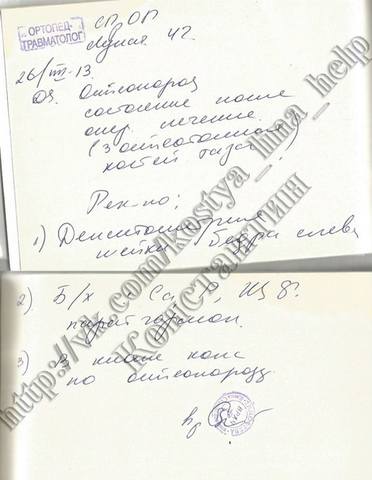 ОРТОПЕД-
ТРАВМАТОЛОГ
26/III-13.
Остеопороз
состояние после
опер. лечения
костей таза)
Рек-но:
1) Денситометрия
шейки бедра слева
2) Б/х Ca, P, ЩФ.
парат гормон.
3) в плане конс
по остеопорозу.
http://vk.com/kostya_inna_help
Константин